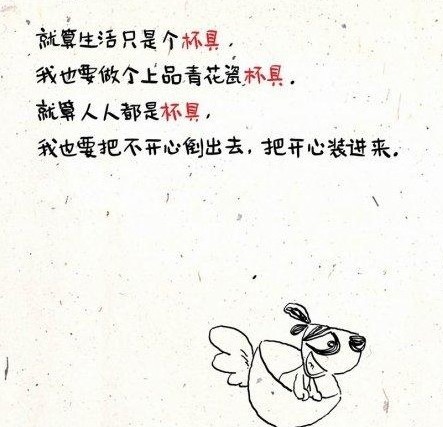 就算生活只是个杯具，
我也要做个上品青花瓷杯具．
就算人人都是杯具，
我也要把不开心倒出去，把开心装进来．